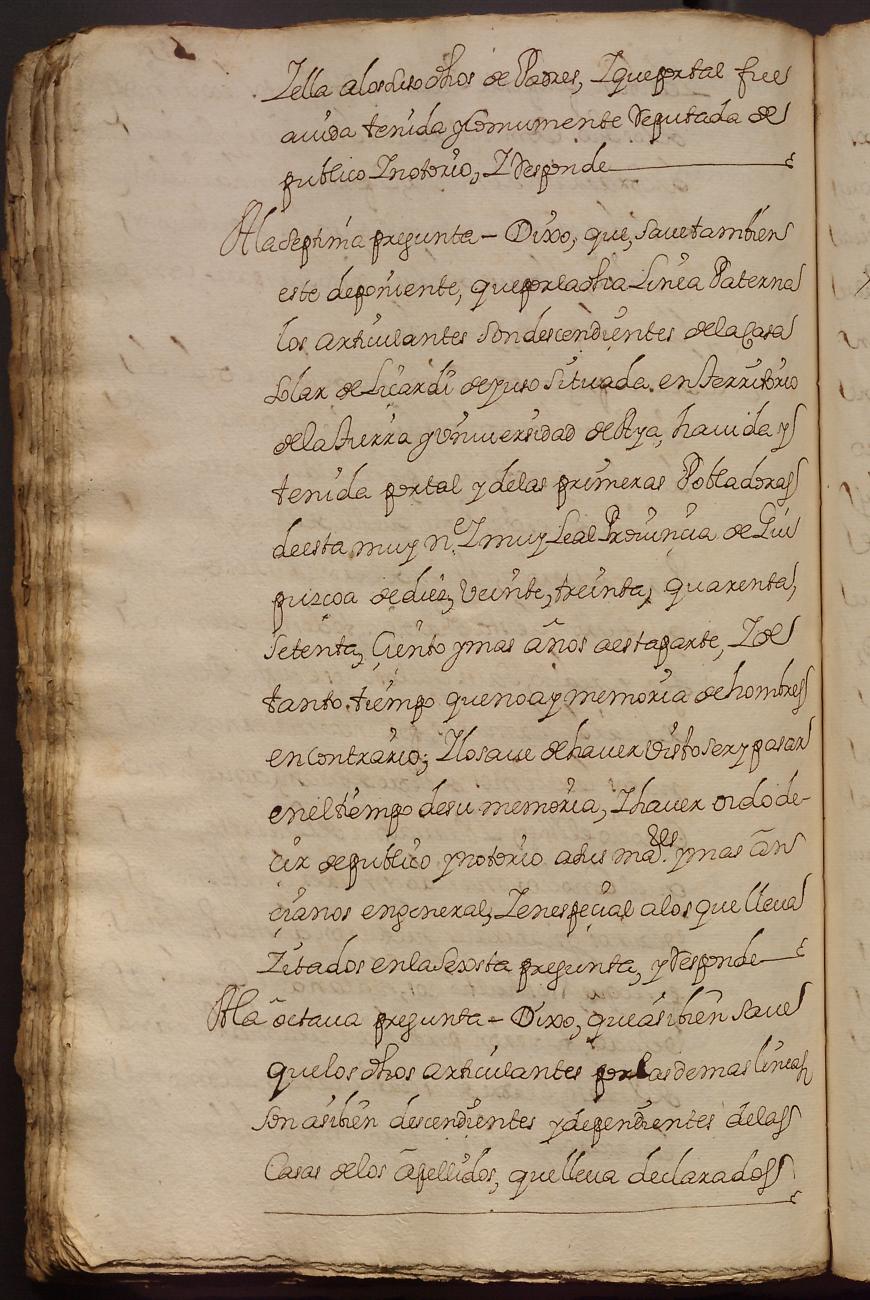 Y ella a los susodhos de Padres, Y que por tal fue
auida tenida y Comumente Reputada de
publico Y notorio, Y Responde
A la septima pregunta - Dixo, que, saue tambien
este deponiente, que por la dha Linea Paterna
los articulantes son descendientes de la Casa
solar de Licardi de yuso situada en territorio
de la tierra y Vniuersidad de Aya, hauida y
tenida por tal y de las primeras Pobladoras
de esta muy n.e Y muy Leal Prouinçia de Gui
puzcoa de diez, Veinte, treinta, quarenta,
setenta, Çiento y mas años a esta parte, Y de
tanto tiempo que no ay memoria de hombres
en contrario; Y lo saue de hauer visto ser y pasar
en el tiempo de su memoria, Y hauer oido de-
cir de publico y notorio a dis may.res y mas an
çianos en general, Y en espeçial a los que lleua
Zitados en la sexta pregunta, y Responde
A la octaua pregunta - Dixo, que asibien saue
que los dhos articulantes por las demas lineas
son asibien descendientes y dependientes de las
Casas de los apellidos, que lleua declarados